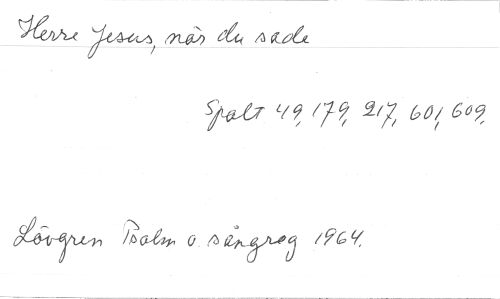 Herre Jesus, när du sade
Spalt 49, 179, 217, 601, 609.
Lövgren Psalm o. sångreg 1964.